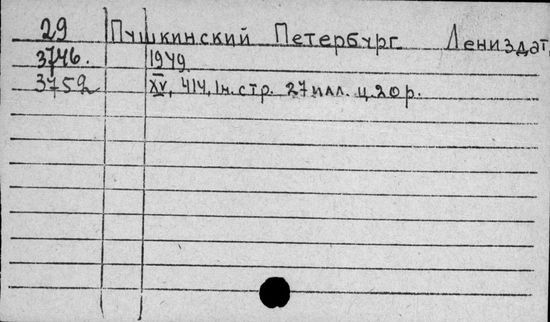 29 Пушкинский Петербург. Лениздат,
3746. 1949
3752 XV, 414, 1н. стр. 27 илл. ц. 20 р.